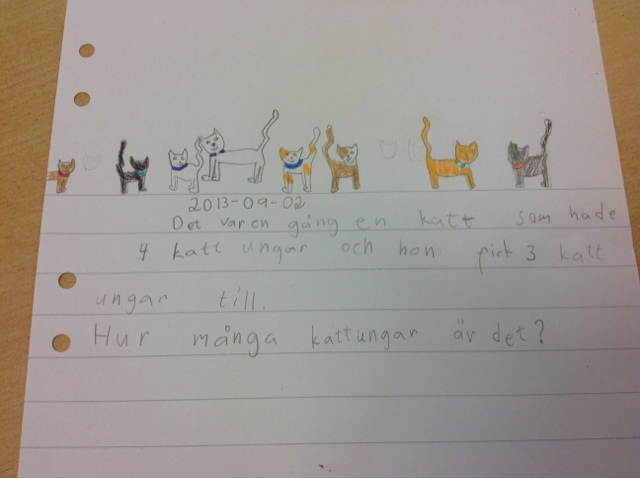 2013-09-02
Det var en gång en katt som hade
4 katt ungar och hon fick 3 katt
ungar till.
Hur många kattungar är det?